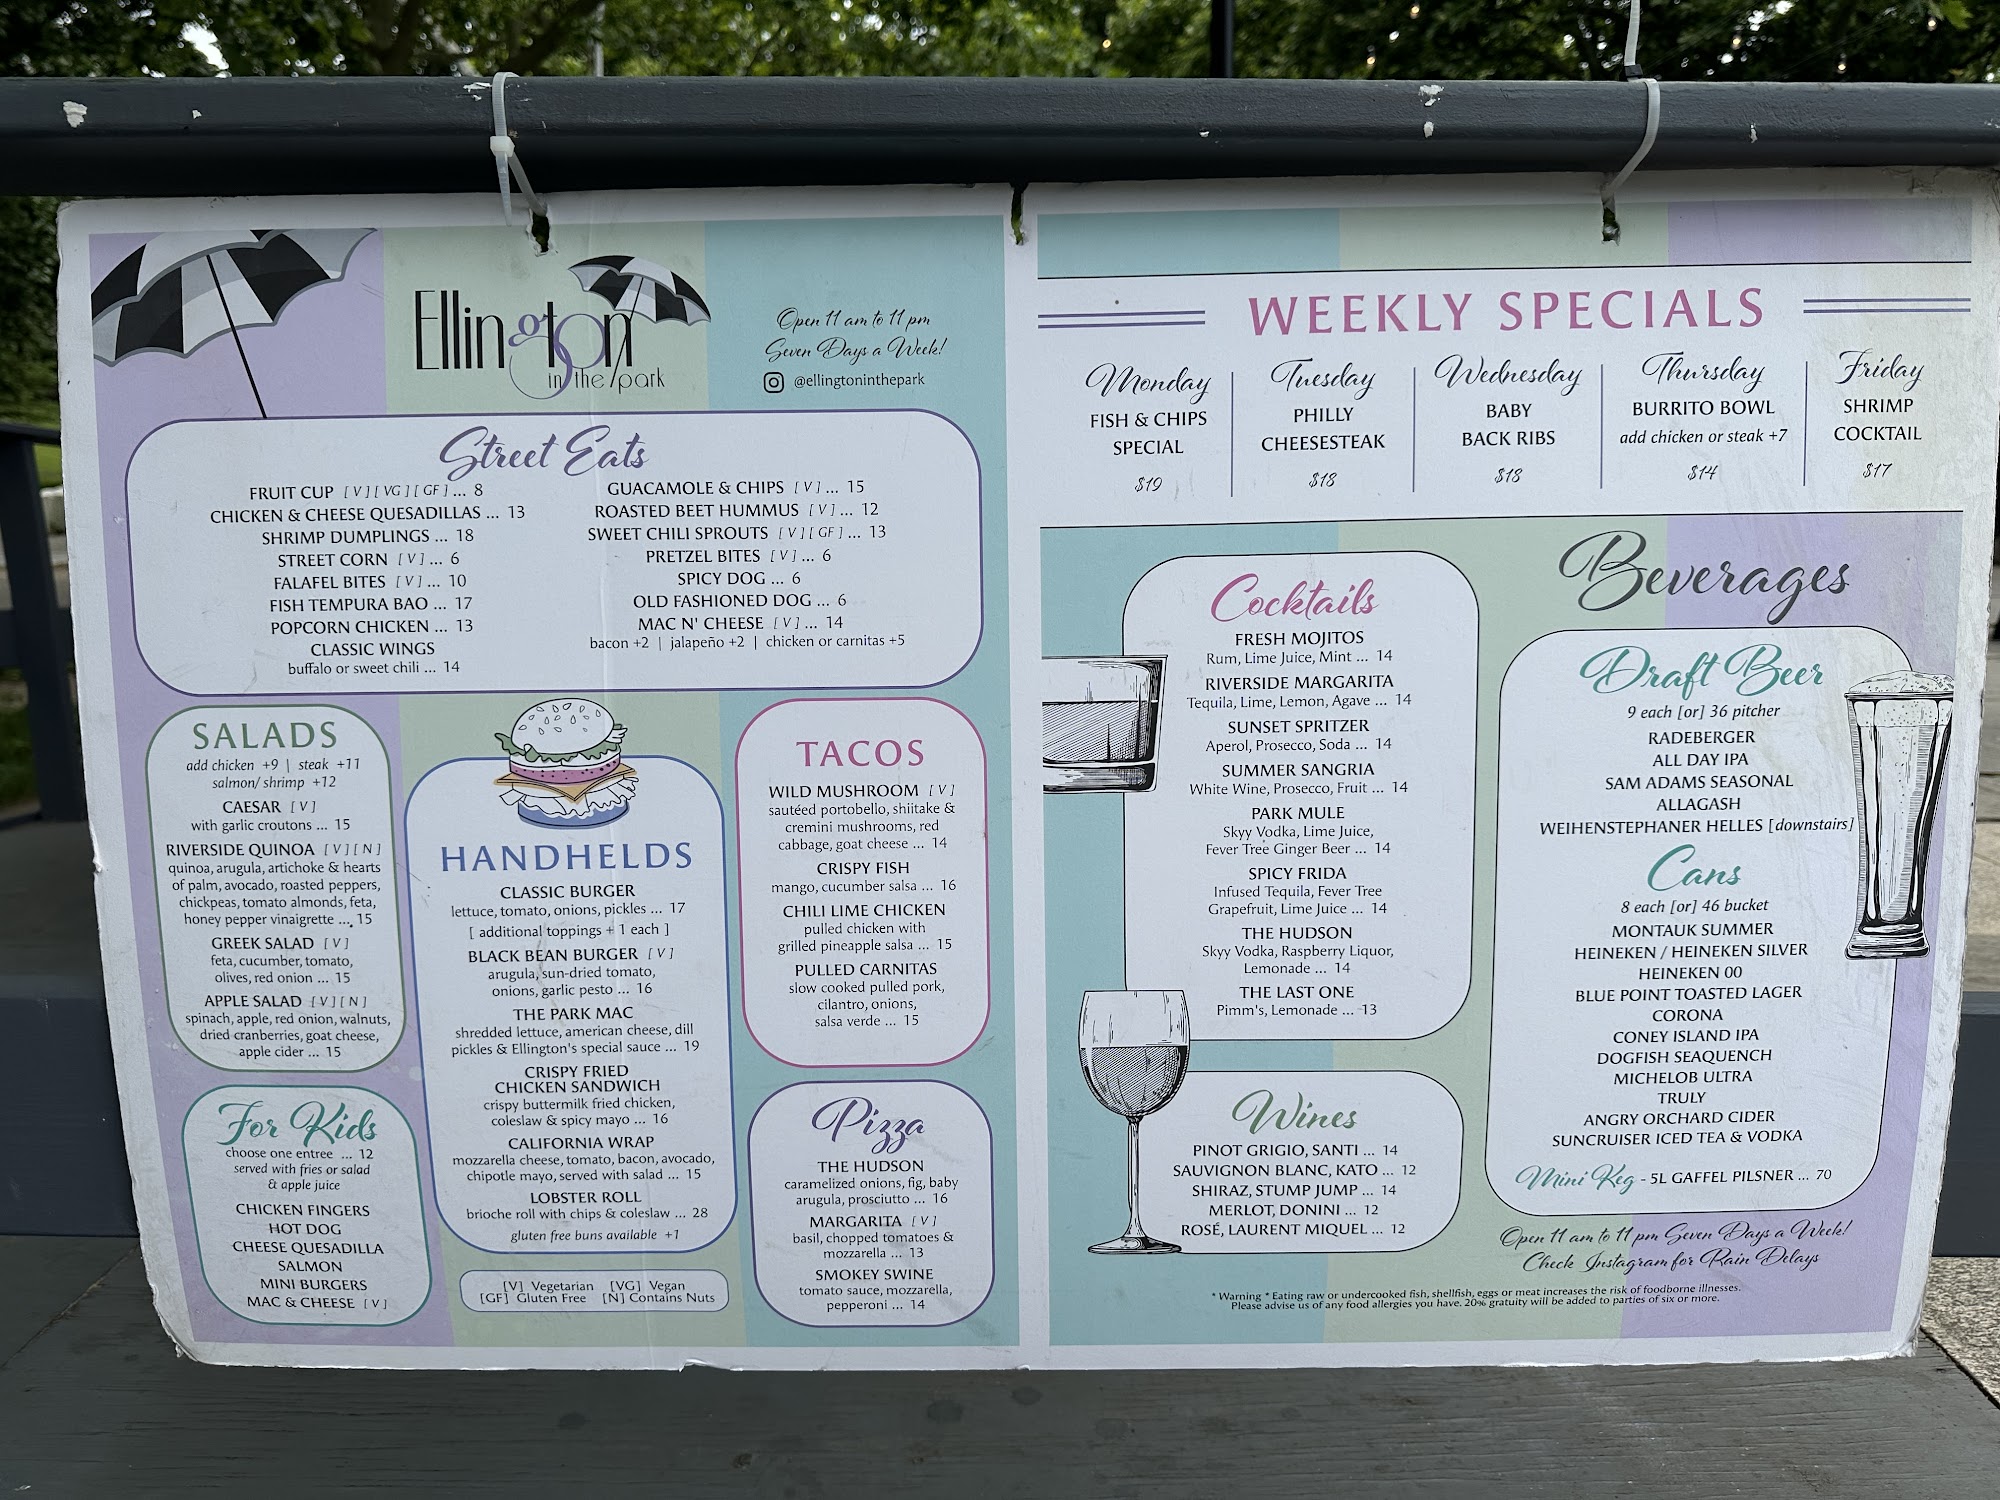 Ellington
in the park
Open 11 am to 11 pm
Seven Days a Week!
@ellingtoninthepark
Street Eats
FRUIT CUP [V][VG][GF]... 8
CHICKEN & CHEESE QUESADILLAS ... 13
SHRIMP DUMPLINGS ... 18
STREET CORN [V]... 6
FALAFEL BITES [V]... 10
FISH TEMPURA BAO ... 17
POPCORN CHICKEN ... 13
CLASSIC WINGS
buffalo or sweet chili ... 14
GUACAMOLE & CHIPS [V]... 15
ROASTED BEET HUMMUS [V]... 12
SWEET CHILI SPROUTS [V][GF]... 13
PRETZEL BITES [V]... 6
SPICY DOG ... 6
OLD FASHIONED DOG ... 6
MAC N' CHEESE [V]... 14
bacon +2 | jalapeño +2 | chicken or carnitas +5
SALADS
add chicken +9 | steak +11
salmon/ shrimp +12
CAESAR [V]
with garlic croutons ... 15
RIVERSIDE QUINOA [V][N]
quinoa, arugula, artichoke & hearts
of palm, avocado, roasted peppers,
chickpeas, tomato almonds, feta,
honey pepper vinaigrette ... 15
GREEK SALAD [V]
feta, cucumber, tomato,
olives, red onion ... 15
APPLE SALAD [V][N]
spinach, apple, red onion, walnuts,
dried cranberries, goat cheese,
apple cider ... 15
For Kids
choose one entree ... 12
served with fries or salad
& apple juice
CHICKEN FINGERS
HOT DOG
CHEESE QUESADILLA
SALMON
MINI BURGERS
MAC & CHEESE [V]
HANDHELDS
CLASSIC BURGER
lettuce, tomato, onions, pickles ... 17
[ additional toppings + 1 each ]
BLACK BEAN BURGER [V]
arugula, sun-dried tomato,
onions, garlic pesto ... 16
THE PARK MAC
shredded lettuce, american cheese, dill
pickles & Ellington's special sauce ... 19
CRISPY FRIED
CHICKEN SANDWICH
crispy buttermilk fried chicken,
coleslaw & spicy mayo ... 16
CALIFORNIA WRAP
mozzarella cheese, tomato, bacon, avocado,
chipotle mayo, served with salad ... 15
LOBSTER ROLL
brioche roll with chips & coleslaw ... 28
gluten free buns available +1
[V] Vegetarian [VG] Vegan
[GF] Gluten Free [N] Contains Nuts
TACOS
WILD MUSHROOM [V]
sautéed portobello, shiitake &
cremini mushrooms, red
cabbage, goat cheese ... 14
CRISPY FISH
mango, cucumber salsa ... 16
CHILI LIME CHICKEN
pulled chicken with
grilled pineapple salsa ... 15
PULLED CARNITAS
slow cooked pulled pork,
cilantro, onions,
salsa verde ... 15
Pizza
THE HUDSON
caramelized onions, fig, baby
arugula, prosciutto ... 16
MARGARITA [V]
basil, chopped tomatoes &
mozzarella ... 13
SMOKEY SWINE
tomato sauce, mozzarella,
pepperoni ... 14
WEEKLY SPECIALS
Monday
FISH & CHIPS
SPECIAL
$19
Tuesday
PHILLY
CHEESESTEAK
$18
Wednesday
BABY
BACK RIBS
$18
Thursday
BURRITO BOWL
add chicken or steak +7
$14
Friday
SHRIMP
COCKTAIL
$17
Beverages
Cocktails
FRESH MOJITOS
Rum, Lime Juice, Mint ... 14
RIVERSIDE MARGARITA
Tequila, Lime, Lemon, Agave ... 14
SUNSET SPRITZER
Aperol, Prosecco, Soda ... 14
SUMMER SANGRIA
White Wine, Prosecco, Fruit ... 14
PARK MULE
Skyy Vodka, Lime Juice,
Fever Tree Ginger Beer ... 14
SPICY FRIDA
Infused Tequila, Fever Tree
Grapefruit, Lime Juice ... 14
THE HUDSON
Skyy Vodka, Raspberry Liquor,
Lemonade ... 14
THE LAST ONE
Pimm's, Lemonade ... 13
Wines
PINOT GRIGIO, SANTI ... 14
SAUVIGNON BLANC, KATO ... 12
SHIRAZ, STUMP JUMP ... 14
MERLOT, DONINI ... 12
ROSÉ, LAURENT MIQUEL ... 12
Draft Beer
9 each [or] 36 pitcher
RADEBERGER
ALL DAY IPA
SAM ADAMS SEASONAL
ALLAGASH
WEIHENSTEPHANER HELLES [downstairs]
Cans
8 each [or] 46 bucket
MONTAUK SUMMER
HEINEKEN / HEINEKEN SILVER
HEINEKEN 00
BLUE POINT TOASTED LAGER
CORONA
CONEY ISLAND IPA
DOGFISH SEAQUENCH
MICHELOB ULTRA
TRULY
ANGRY ORCHARD CIDER
SUNCRUISER ICED TEA & VODKA
Mini Keg - 5L GAFFEL PILSNER ... 70
Open 11 am to 11 pm Seven Days a Week!
Check Instagram for Rain Delays
* Warning * Eating raw or undercooked fish, shellfish, eggs or meat increases the risk of foodborne illnesses.
Please advise us of any food allergies you have. 20% gratuity will be added to parties of six or more.